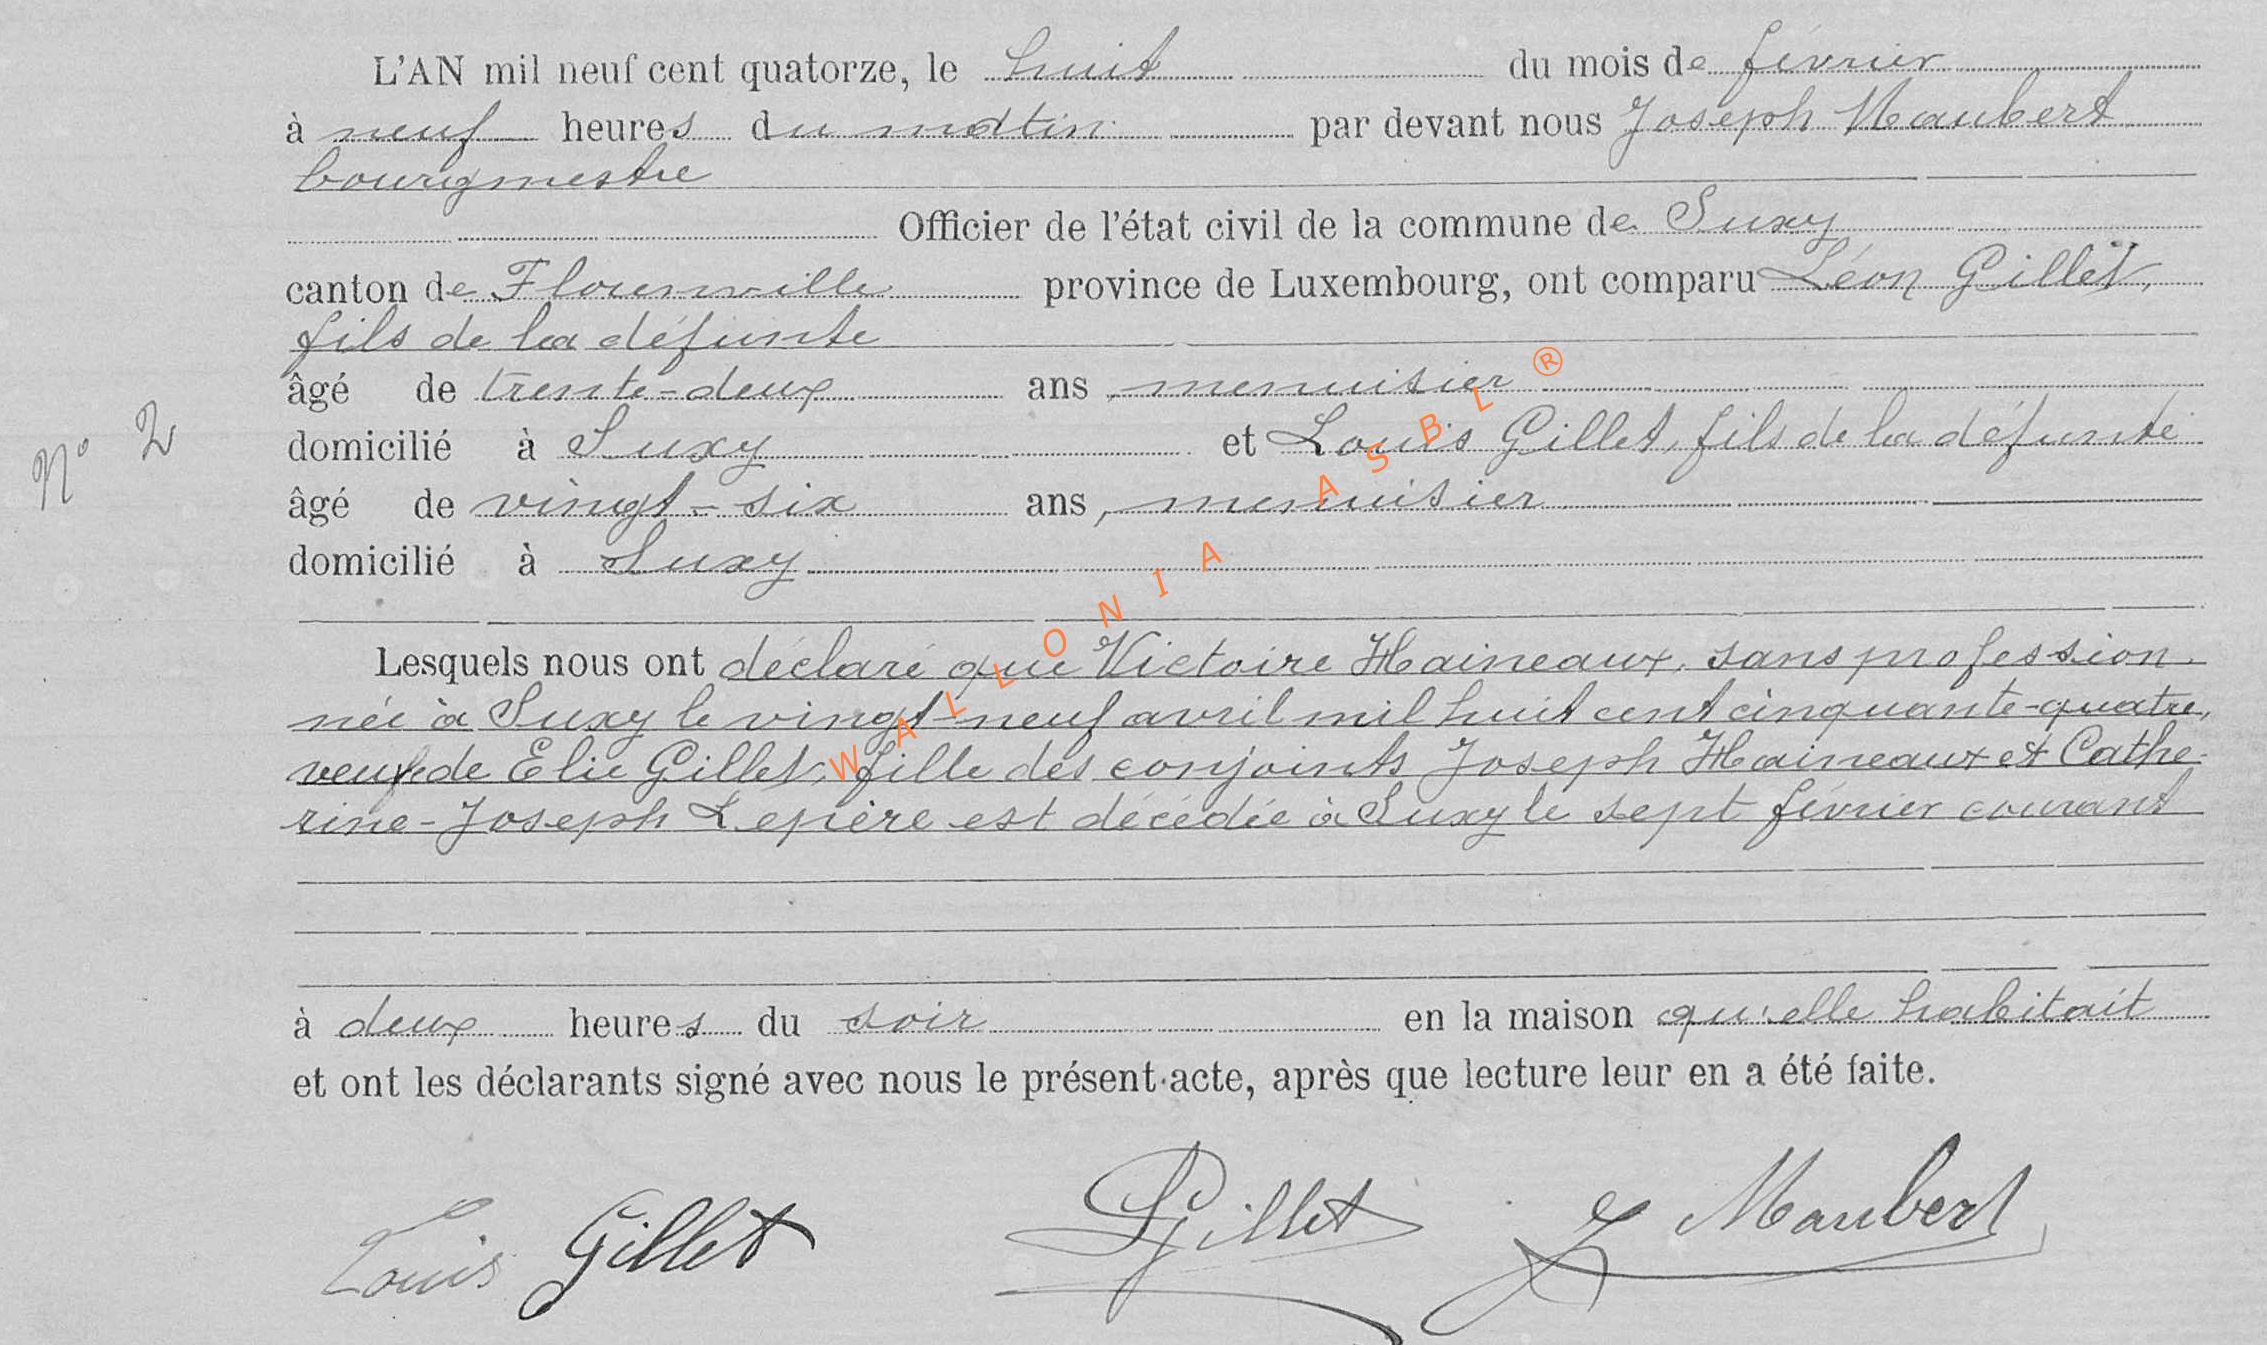 L'AN mil neuf cent quatorze, le huit du mois de février
à neuf heures du matin par devant nous Joseph Maubert
bourgmestre
Officier de l'état civil de la commune de Suxy
canton de Florenville province de Luxembourg, ont comparu Léon Gillet,
fils de la défunte
âgé de trente-deux ans, menuisier
domicilié à Suxy et Louis Gillet, fils de la défunte
âgé de vingt-six ans, menuisier
domicilié à Suxy
N° 2
Lesquels nous ont déclaré que Victoire Haineaux, sans profession,
née à Suxy le vingt-neuf avril mil huit cent cinquante-quatre,
veuve de Elie Gillet, fille des conjoints Joseph Haineaux et Cathe-
rine-Joseph Lepère est décédée à Suxy le sept février courant
à deux heures du soir en la maison qu'elle habitait
et ont les déclarants signé avec nous le présent acte, après que lecture leur en a été faite.
Louis Gillet LGillet J Maubert
WALLONIA ASBL ®